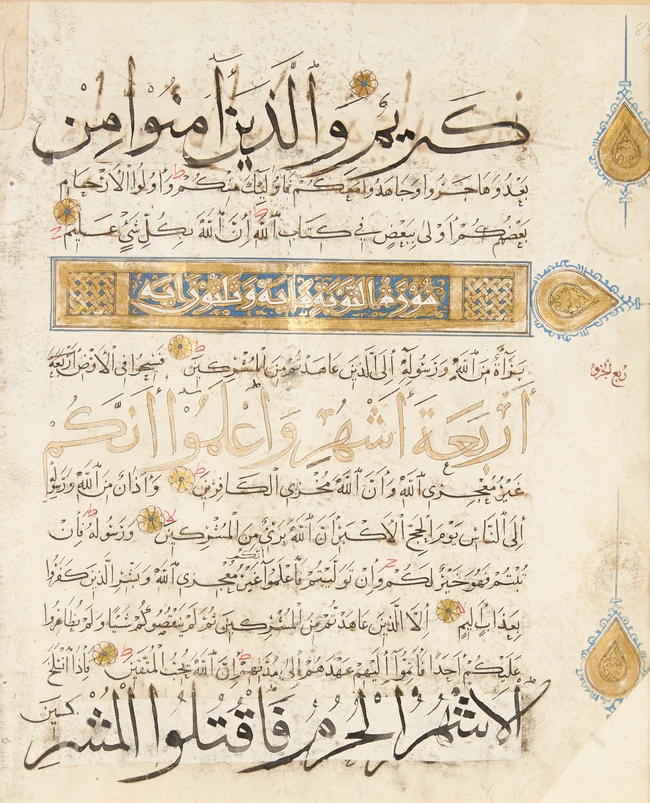 كريم والذين آمنوا من
بعد وهاجروا وجاهدوا معكم فاولئك منكم واولوا الارحام
بعضهم اولى ببعض في كتاب الله ان الله بكل شيء عليم
سورة التوبة مائة وثلثون اية
براءة من الله ورسوله الى الذين عاهدتم من المشركين فسيحوا في الارض اربعة
ربع الجزو
أربعة أشهر واعلموا أنكم
غير معجزي الله وان الله مخزي الكافرين واذان من الله ورسوله
الى الناس يوم الحج الاكبر ان الله بريء من المشركين ورسوله فان
تبتم فهو خير لكم وان توليتم فاعلموا انكم غير معجزي الله وبشر الذين كفروا
بعذاب اليم الا الذين عاهدتم من المشركين ثم لم ينقصوكم شيئا ولم يظاهروا
عليكم احدا فاتموا اليهم عهدهم الى مدتهم ان الله يحب المتقين فاذا انسلخ
الاشهر الحرم فاقتلوا المشركين